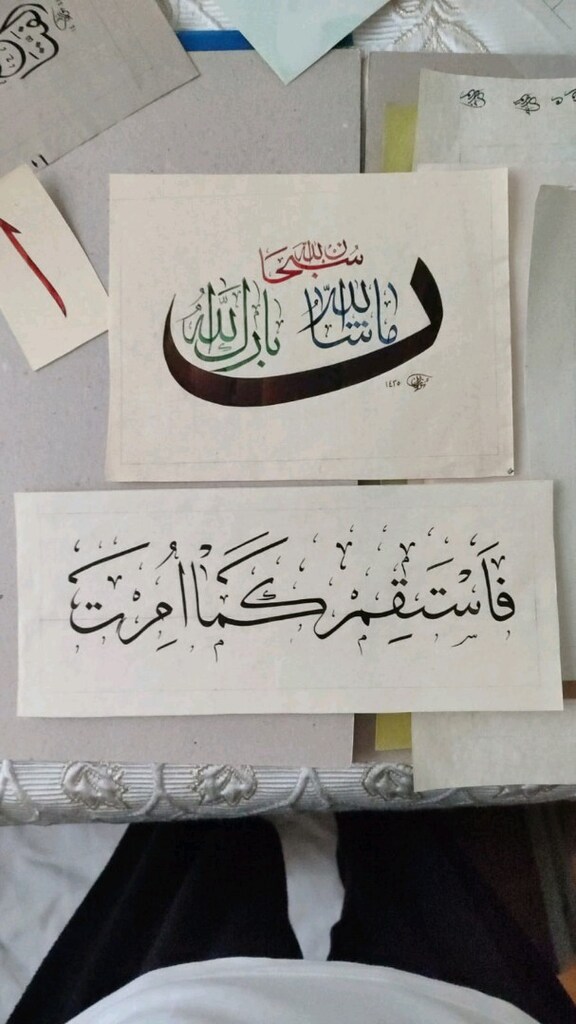 سُبْحَانَ اللّٰه
مَا شَاءَ اللّٰهُ
بَارَكَ اللّٰهُ
١٤٣٥
فَاَسْتَقِمْ كَمَا اُمِرْتَ